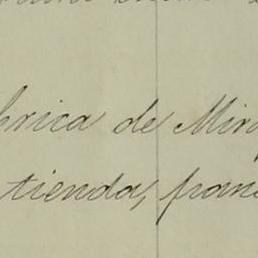 brica de Mira
tienda, fran